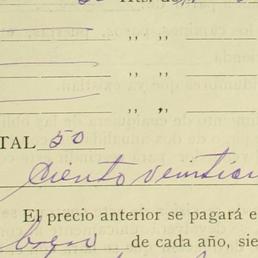 ,, ,,
,, ,,
,, ,,
TAL 50
Ciento veintici
El precio anterior se pagará e
brero de cada año, sie